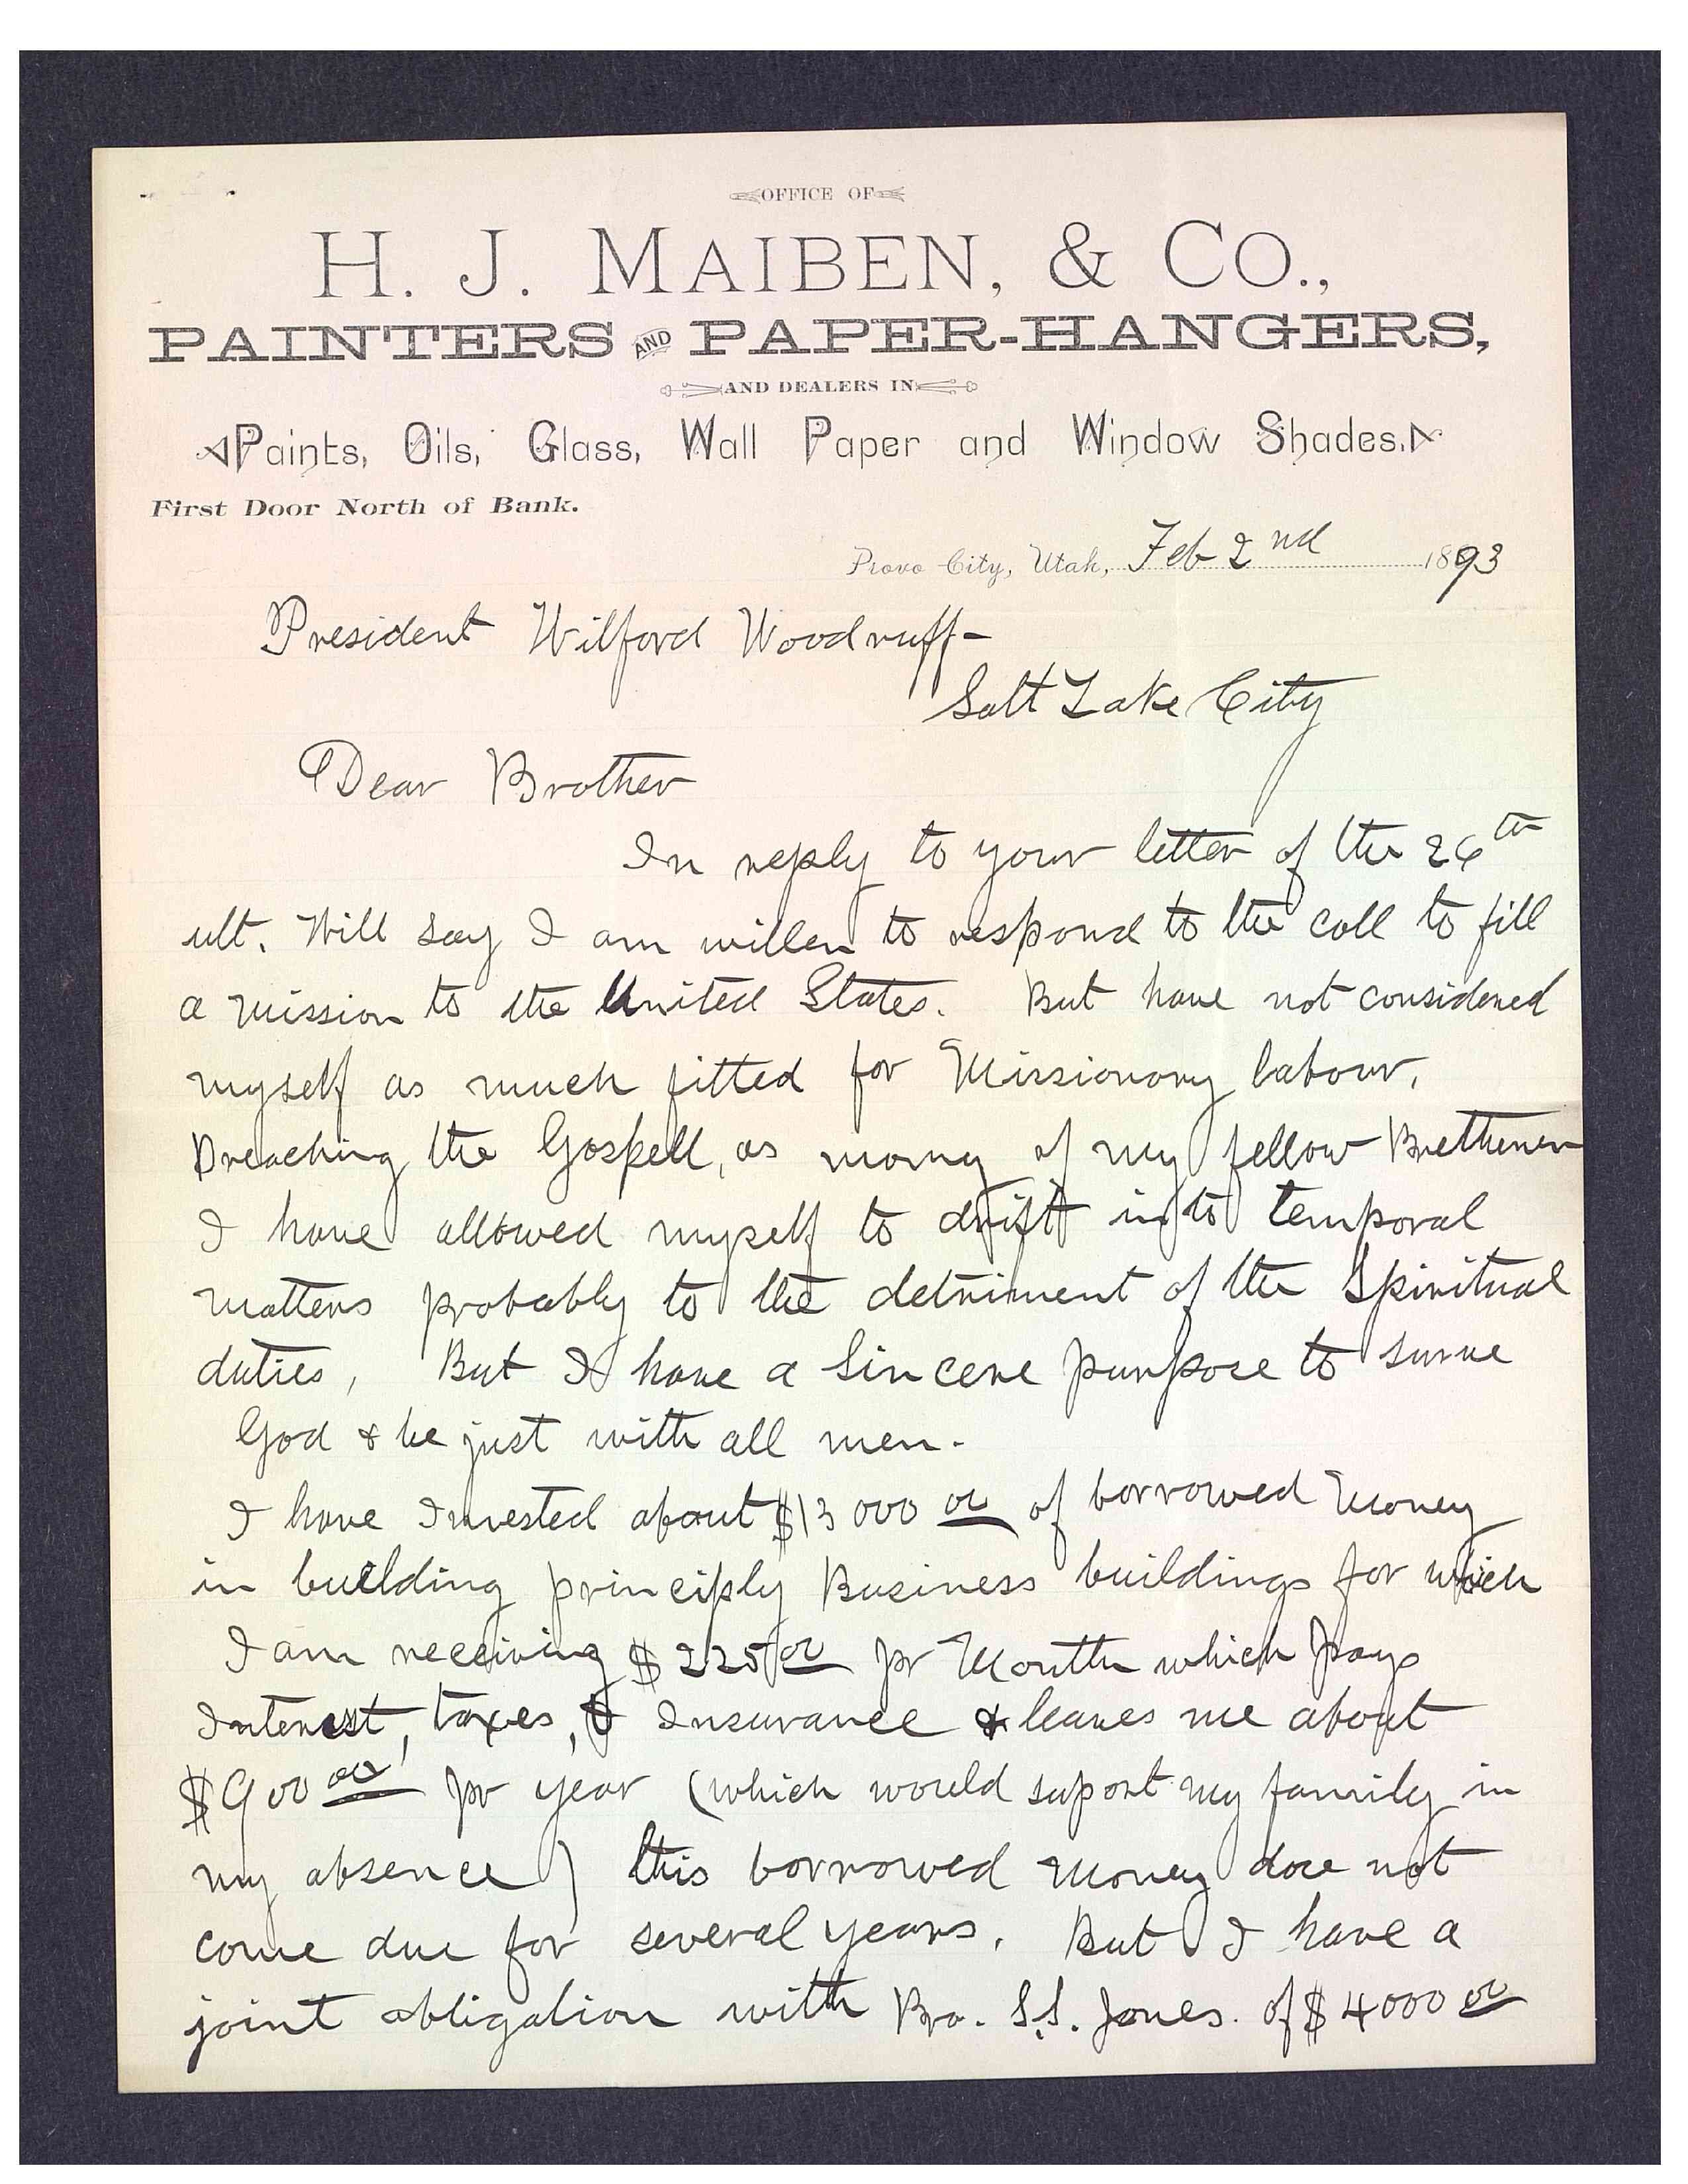 OFFICE OF
H. J. MAIBEN, & CO.,
PAINTERS AND PAPER-HANGERS,
AND DEALERS IN
Paints, Oils, Glass, Wall Paper and Window Shades.
First Door North of Bank.
Provo City, Utah, Feb 2nd 1893
President Wilford Woodruff-
Salt Lake City
Dear Brother
In reply to your letter of the 26th
ult. Will say I am willen to respond to the call to fill
a mission to the United States. But have not considered
myself as much fitted for Missionary labour,
Preaching the Gospell, as many of my fellow Bretheren
I have allowed myself to drift into temporal
matters probably to the detriment of the Spiritual
duties, But I have a Sincere purpose to surve
God & be just with all men.
I have Invested about $13000 00 of borrowed Money
in building principly Business buildings for which
I am receiving $225 00 pr Month which pays
Interest, taxes, & Insurance & leaves me about
$900 00 pr year (which would suport my family in
my absence) this borrowed money doe not
come due for several years. But I have a
joint obligation with Bro. S.S. Jones. of $4000 00